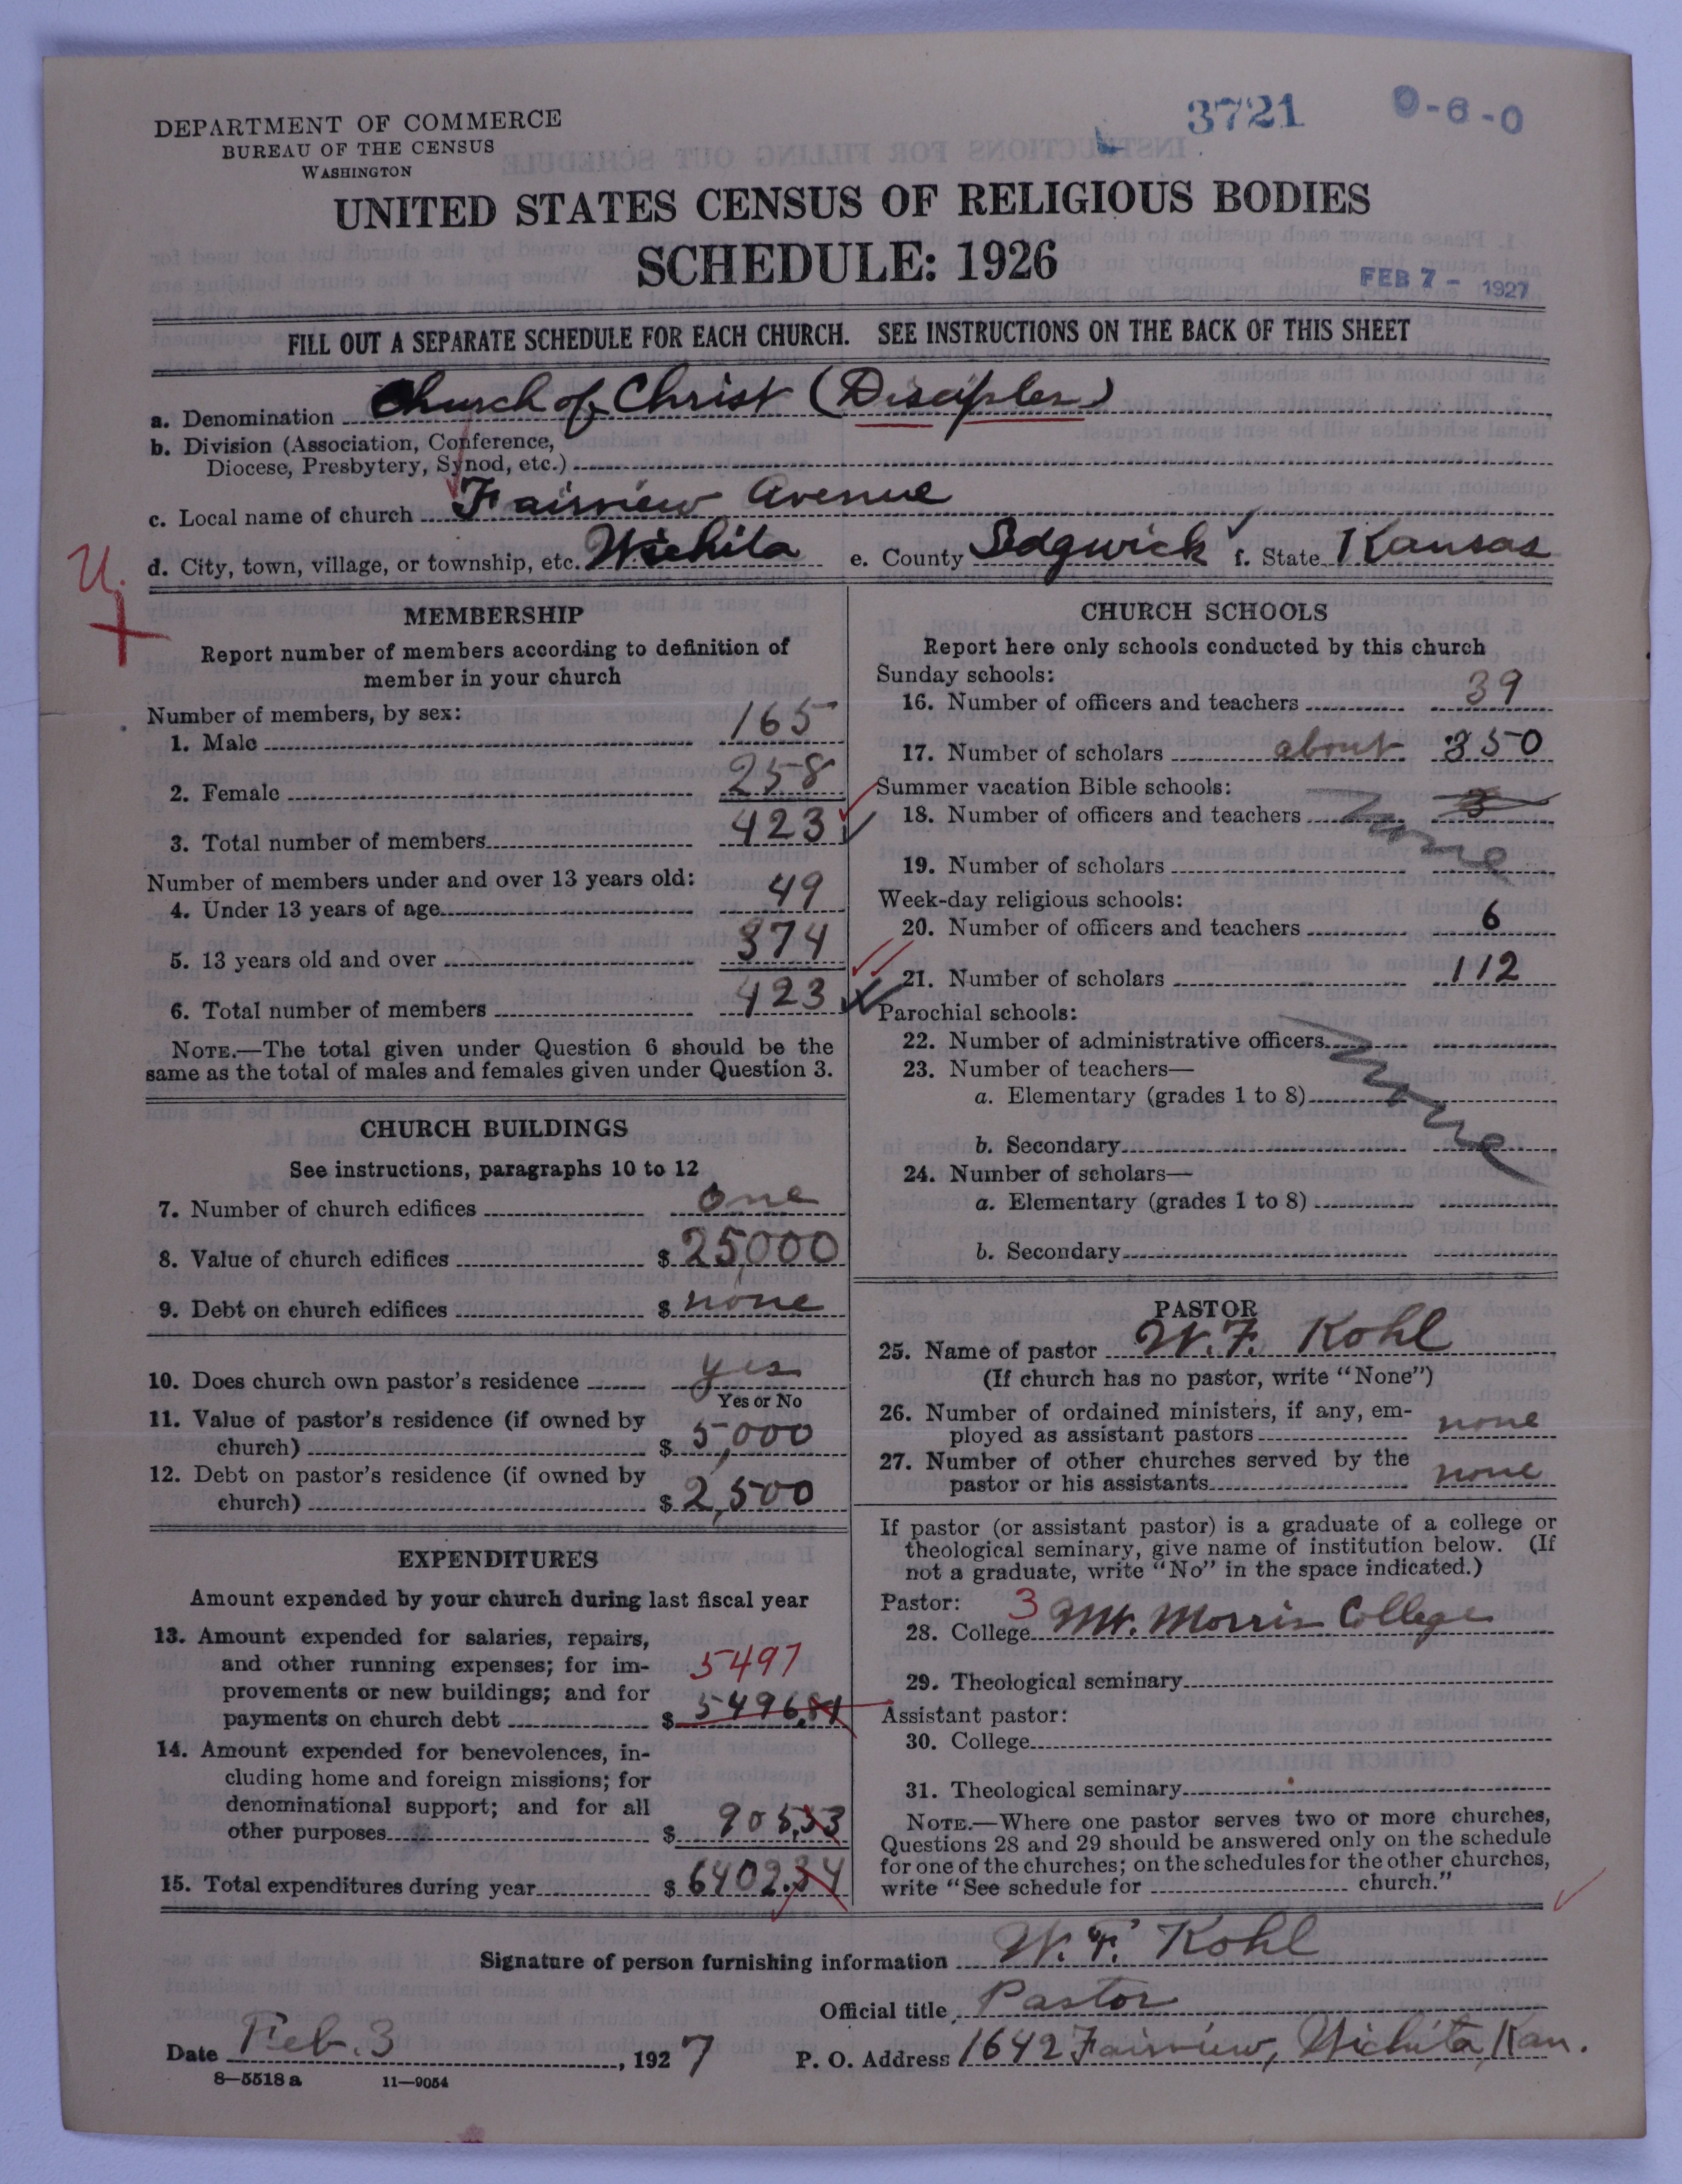 3721 0-6-0
DEPARTMENT OF COMMERCE
BUREAU OF THE CENSUS
WASHINGTON
UNITED STATES CENSUS OF RELIGIOUS BODIES
SCHEDULE: 1926
FEB 7 - 1927
FILL OUT A SEPARATE SCHEDULE FOR EACH CHURCH. SEE INSTRUCTIONS ON THE BACK OF THIS SHEET
a. Denomination Church of Christ (Disciples)
b. Division (Association, Conference,
Diocese, Presbytery, Synod, etc.)
c. Local name of church Fairview Avenue
d. City, town, village, or township, etc. Wichita e. County Sedgwick f. State Kansas
U.
MEMBERSHIP
Report number of members according to definition of
member in your church
Number of members, by sex:
1. Male 165
2. Female 258
3. Total number of members 423
Number of members under and over 13 years old:
4. Under 13 years of age 49
5. 13 years old and over 374
6. Total number of members 423
NOTE.—The total given under Question 6 should be the
same as the total of males and females given under Question 3.
CHURCH BUILDINGS
See instructions, paragraphs 10 to 12
7. Number of church edifices one
8. Value of church edifices $ 25,000
9. Debt on church edifices $ none
10. Does church own pastor's residence yes
Yes or No
11. Value of pastor's residence (if owned by
church) $ 5,000
12. Debt on pastor's residence (if owned by
church) $ 2,500
EXPENDITURES
Amount expended by your church during last fiscal year
13. Amount expended for salaries, repairs,
and other running expenses; for im- 5497
provements or new buildings; and for
payments on church debt $ 5496.81
14. Amount expended for benevolences, in-
cluding home and foreign missions; for
denominational support; and for all
other purposes $ 905.53
15. Total expenditures during year $ 6402.34
CHURCH SCHOOLS
Report here only schools conducted by this church
Sunday schools:
16. Number of officers and teachers 39
17. Number of scholars about 350
Summer vacation Bible schools:
18. Number of officers and teachers None 3
19. Number of scholars
Week-day religious schools:
20. Number of officers and teachers 6
21. Number of scholars 112
Parochial schools:
22. Number of administrative officers None
23. Number of teachers—
a. Elementary (grades 1 to 8)
b. Secondary
24. Number of scholars—
a. Elementary (grades 1 to 8)
b. Secondary
PASTOR
25. Name of pastor W. F. Kohl
(If church has no pastor, write "None")
26. Number of ordained ministers, if any, em-
ployed as assistant pastors none
27. Number of other churches served by the
pastor or his assistants none
If pastor (or assistant pastor) is a graduate of a college or
theological seminary, give name of institution below. (If
not a graduate, write "No" in the space indicated.)
Pastor: 3
28. College Mt. Morris College
29. Theological seminary
Assistant pastor:
30. College
31. Theological seminary
NOTE.—Where one pastor serves two or more churches,
Questions 28 and 29 should be answered only on the schedule
for one of the churches; on the schedules for the other churches,
write "See schedule for church."
Signature of person furnishing information W. F. Kohl
Official title Pastor
Date Feb. 3, 1927 P. O. Address 1642 Fairview, Wichita, Kan.
8—5518 a 11—9054